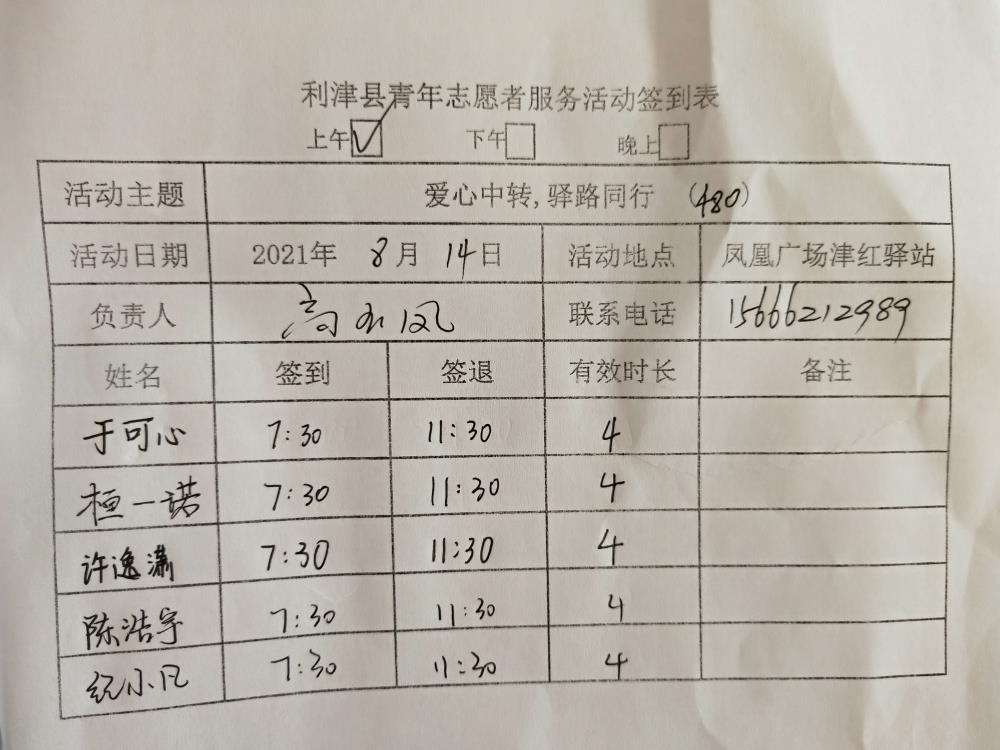 利津县青年志愿者服务活动签到表
上午☑ 下午□ 晚上□
活动主题 爱心中转,驿路同行 (480)
活动日期 2021年 8月 14日 活动地点 凤凰广场津红驿站
负责人 联系电话 15666212989
姓名 签到 签退 有效时长 备注
于可心 7:30 11:30 4
桓一诺 7:30 11:30 4
许逸潇 7:30 11:30 4
陈浩宇 7:30 11:30 4
纪小凡 7:30 11:30 4